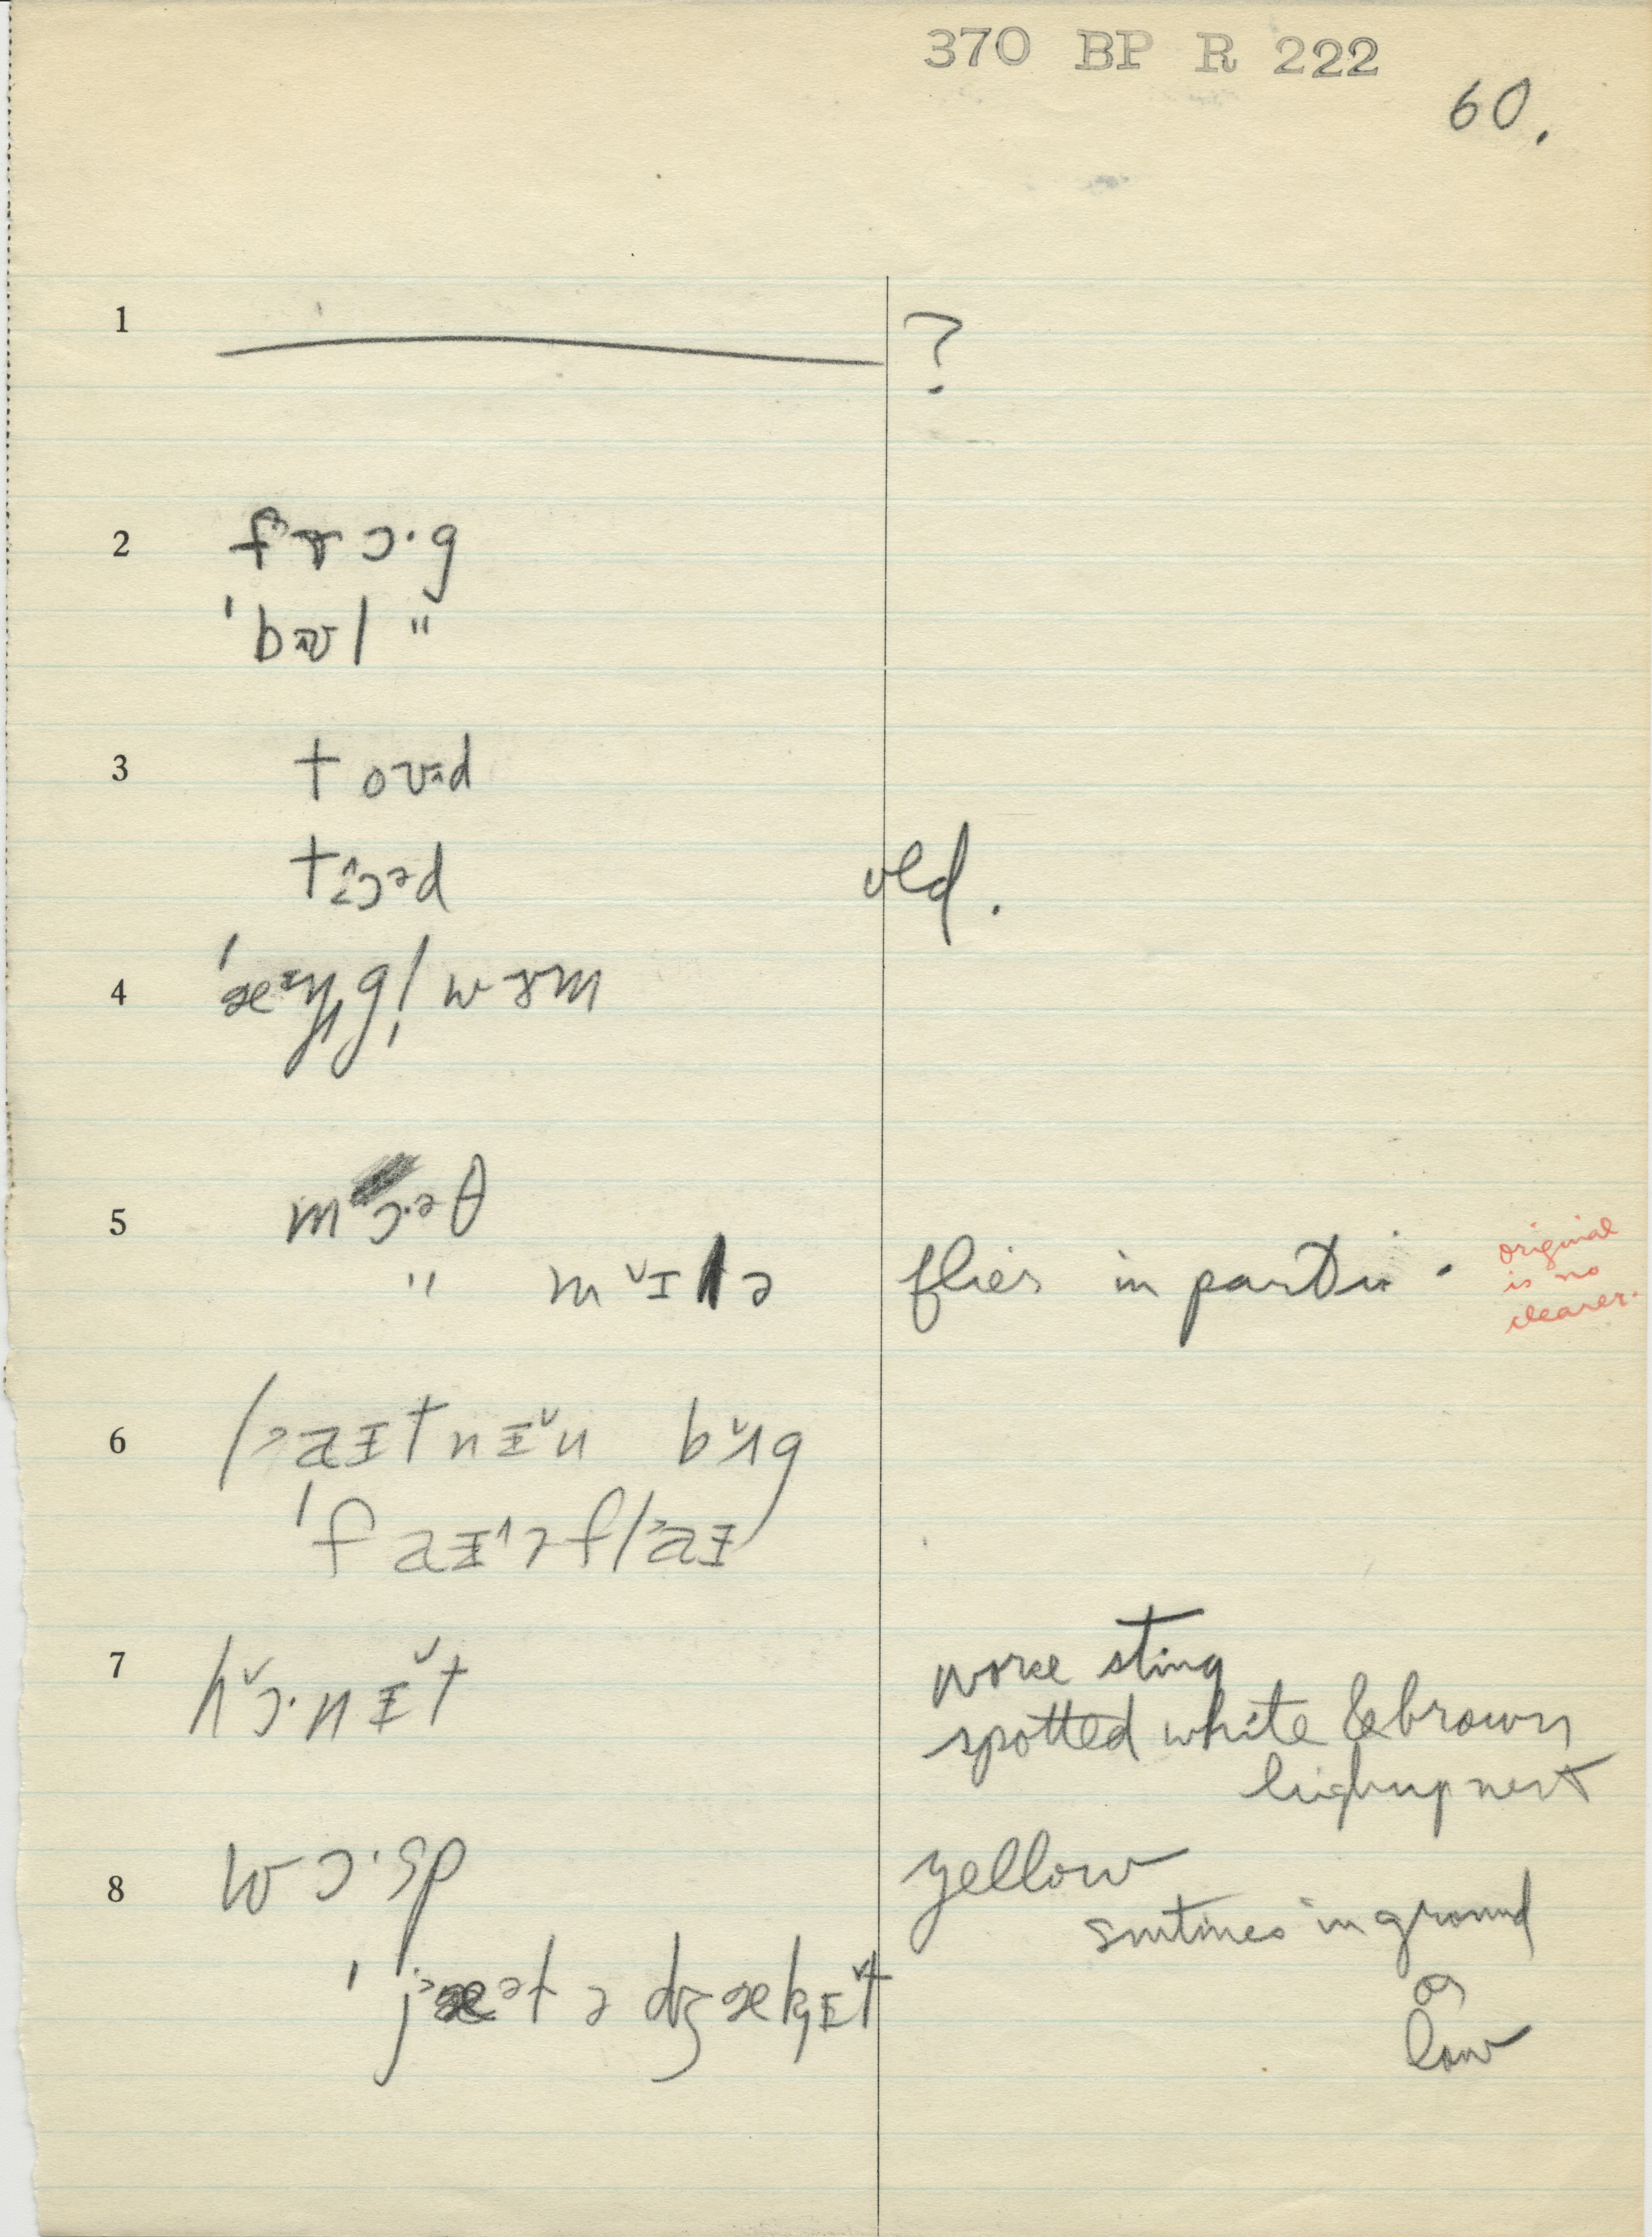 370 BP R 222
60.
1 ?
2 frɔ·g
'bʊl "
3 toʊəd
tɔəd old.
4 'æᵻŋgl̩wɜm
5 mɔ·əθ
" mɪ˅lə flies in original
is no
clearer.
6 laɪtnɪ˅n bʌ˅g
'faɪ˄əflaɪ
7 hɔ˅·nɪ˅t worse sting
spotted white & brown
high up nest
8 wɔ·sp yellow
smtimes in ground
or
low
'jæətə dʒækɪ˅t